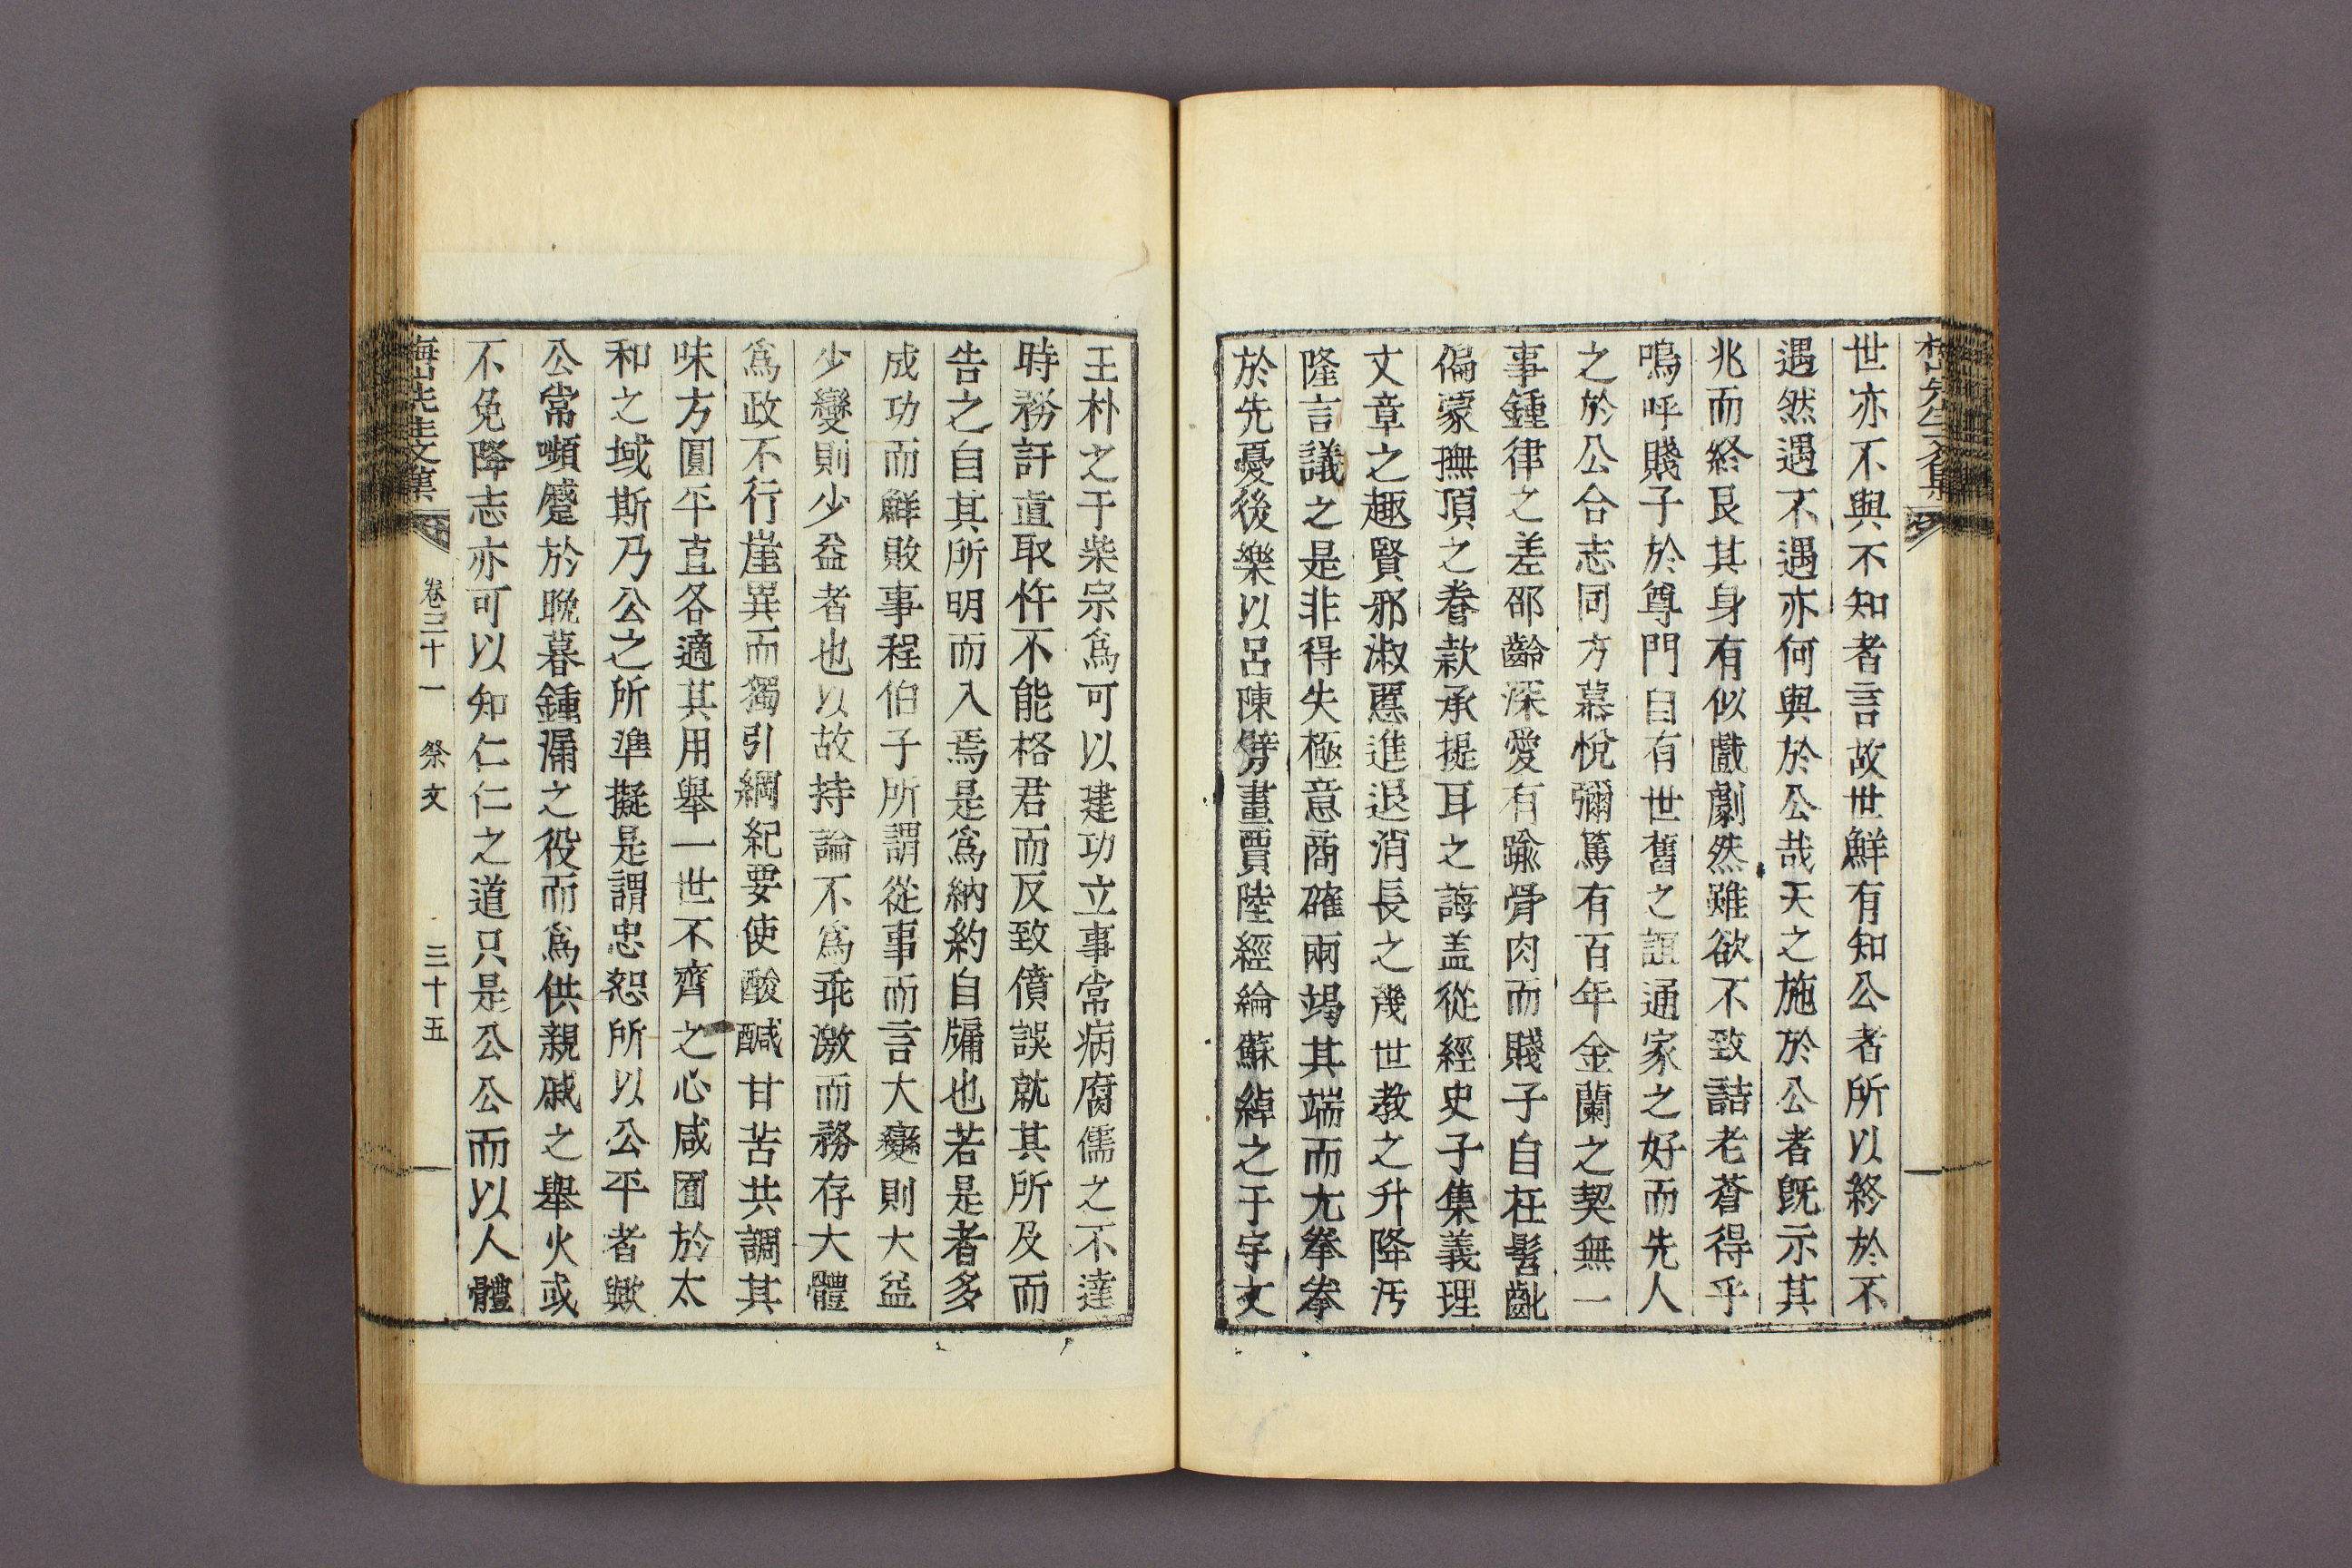 世亦不與不知者言故世鮮有知公者所以終於不
遇然遇不遇亦何與於公哉天之施於公者旣示其
兆而終艮其身有似戲劇然雖欲不致詰老蒼得乎
嗚呼賤子於尊門自有世舊之誼通家之好而先人
之於公合志同方慕悅彌篤有百年金蘭之契無一
事鍾律之差邵齡深愛有踰骨肉而賤子自在髫齔
偏蒙撫頂之眷款承提耳之誨盖從經史子集義理
文章之趣賢邪淑慝進退消長之幾世敎之升降汚
隆言議之是非得失極意商確兩竭其端而尤拳拳
於先憂後樂以呂陳劈畫賈陸經綸蘇綽之于宇文
王朴之于柴宗爲可以建功立事常病腐儒之不達
時務訐直取忤不能格君而反致僨誤就其所及而
告之自其所明而入焉是爲納約自牖也若是者多
成功而鮮敗事程伯子所謂從事而言大變則大益
少變則少益者也以故持論不爲乖激而務存大體
爲政不行崖異而獨引綱紀要使酸醎甘苦共調其
味方圓平直各適其用舉一世不齊之心咸囿於太
和之域斯乃公之所準擬是謂忠恕所以公平者歟
公常嚬蹙於晩暮鍾漏之役而爲供親戚之舉火或
不免降志亦可以知仁仁之道只是公公而以人體
梅山先生文集 卷三十一 祭文 三十五